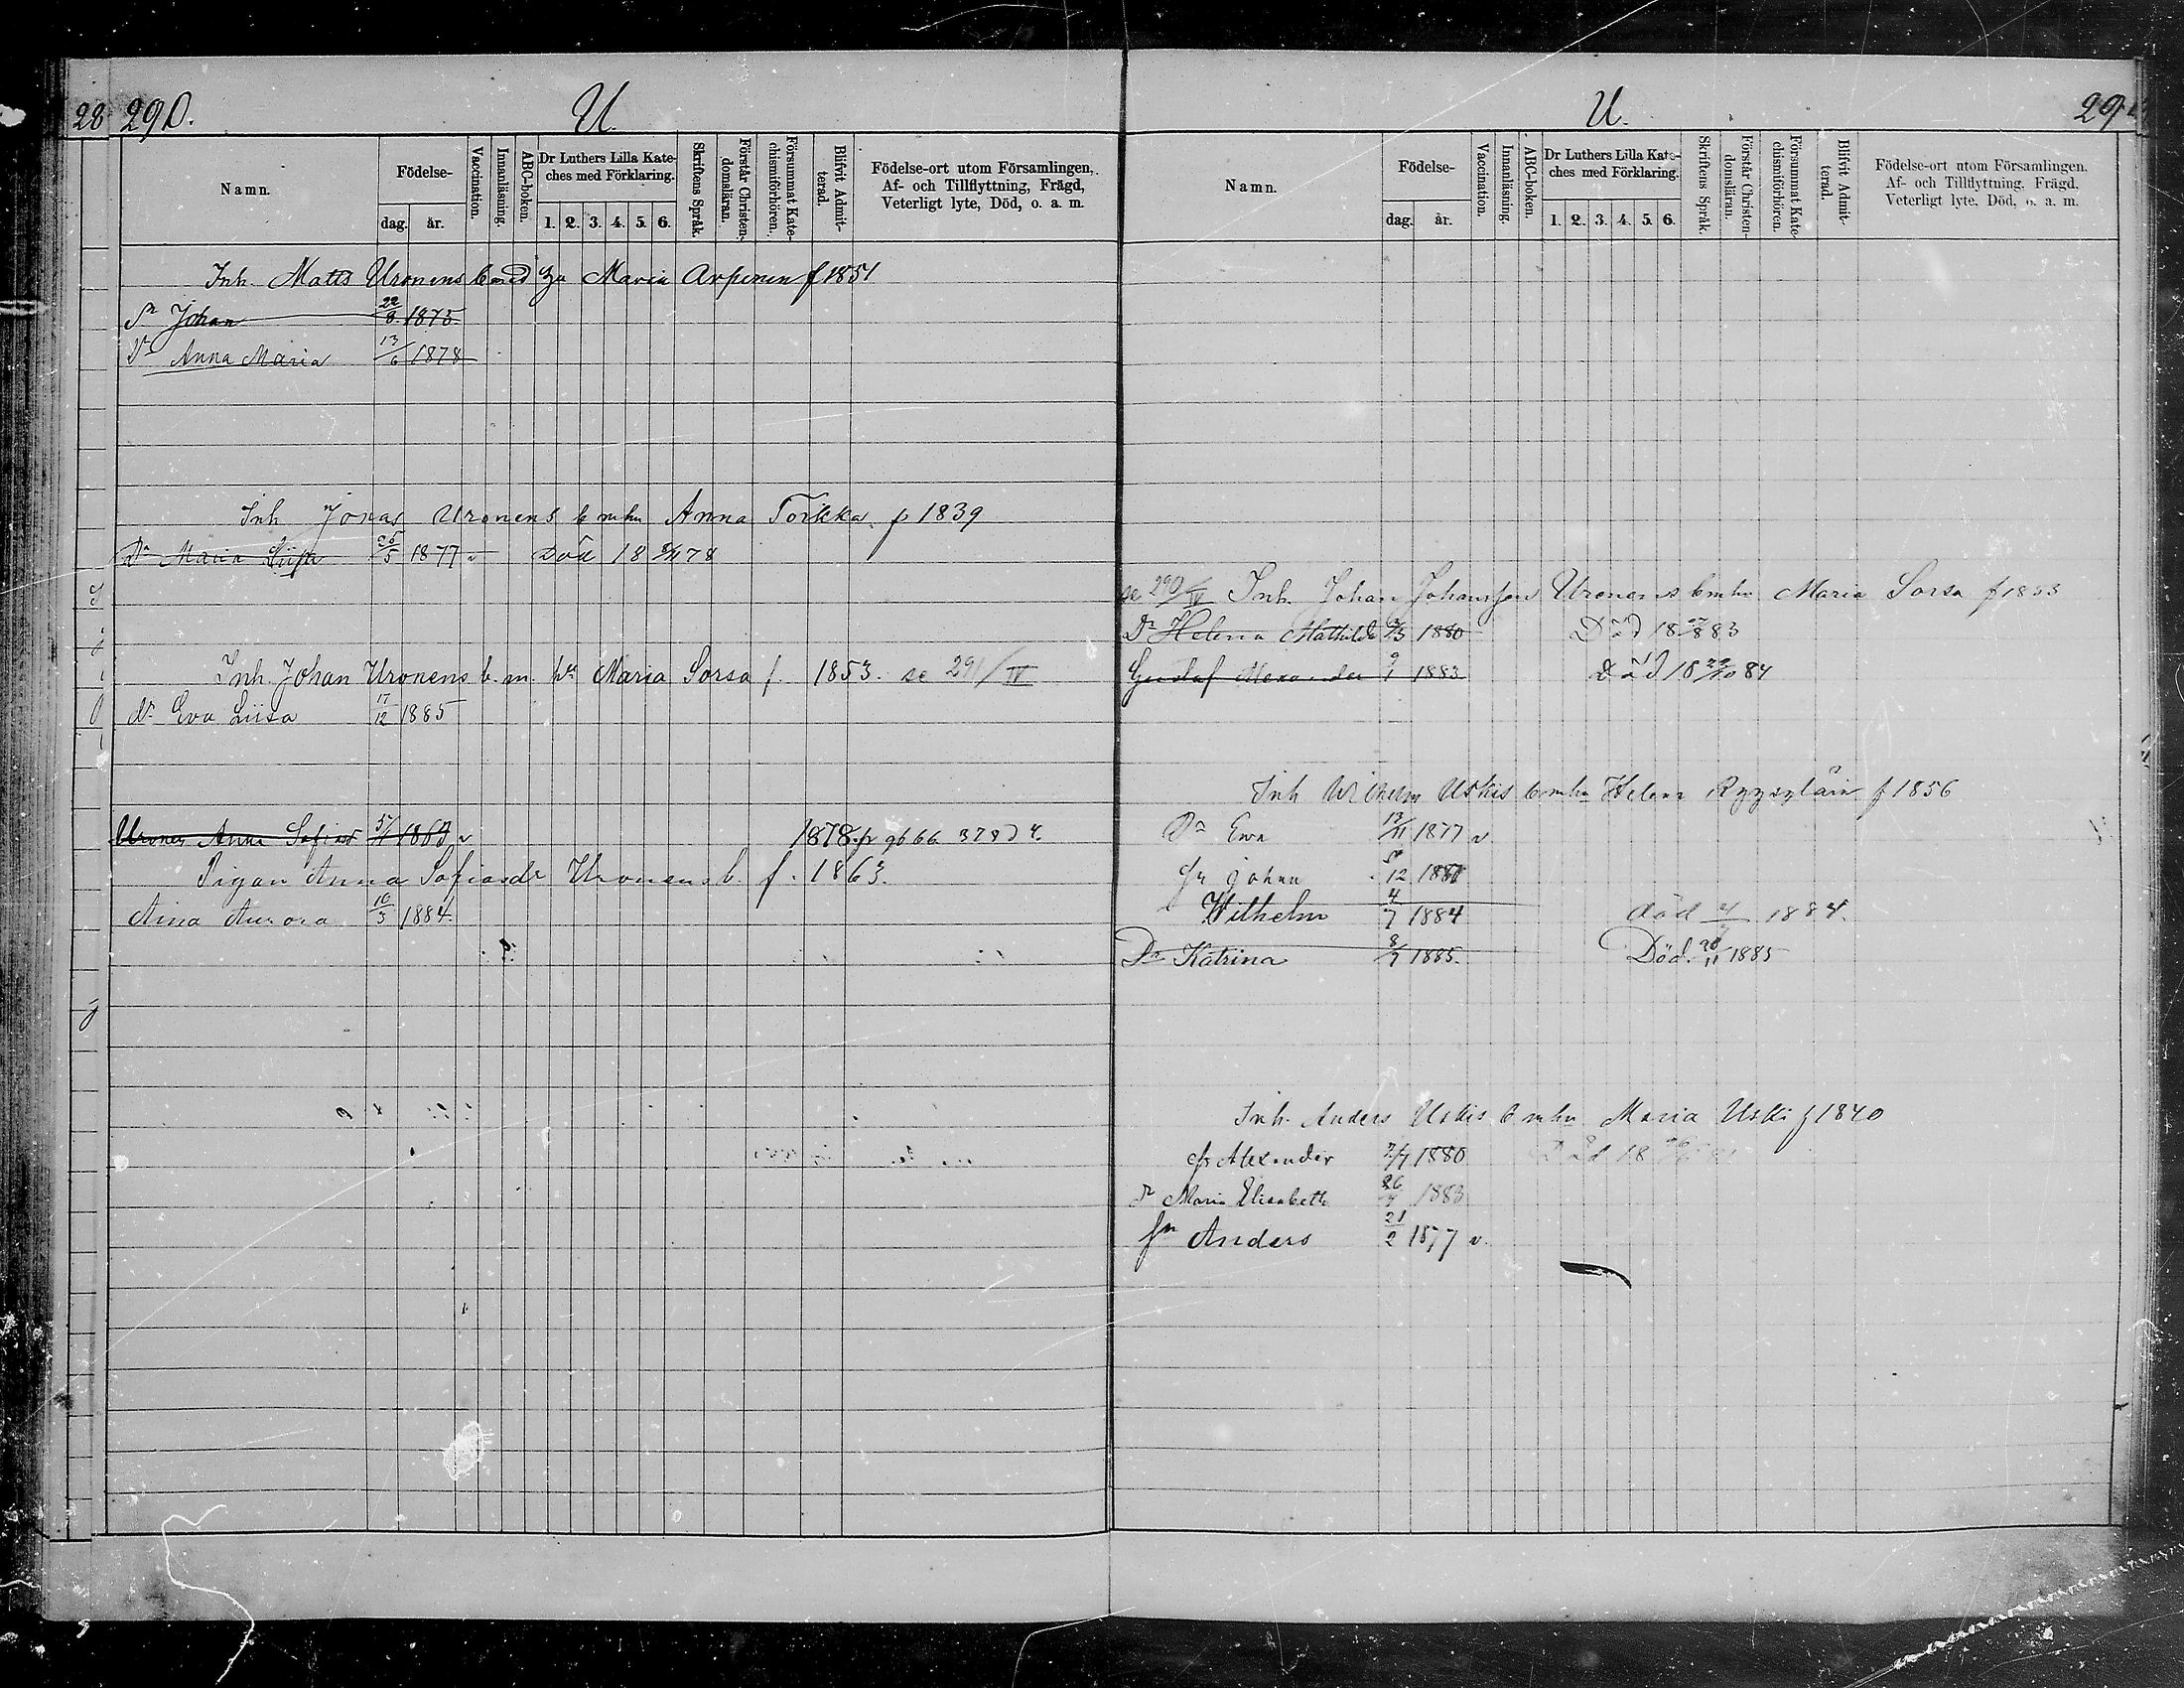 28 290. U.
Namn.
Födelse-
dag. år.
Vaccination.
Innanläsning.
ABC-boken.
Dr Luthers Lilla Kate-
ches med Förklaring.
1. 2. 3. 4. 5. 6.
Skriftens Språk.
Förstår Christen-
domsläran.
Försummat Kate-
chismiförhören.
Blifvit Admit-
terad.
Födelse-ort utom Församlingen,
Af- och Tillflyttning, Frägd,
Veterligt lyte, Död, o. a. m.
Inh. Matts Uronens Maria Arponen f 1851
Sn Johan 22/8 1875
Dr Anna Maria 13/6 1878
Inh Jonas Uronens b m hu Anna Torkka f 1839
Dr Maria Liisa 25/5 1877 v Död 18 78
Inh. Johan Uronens b. m. hu Maria Sorsa f. 1853. se 291/IV
dr Eva Liisa 17/12 1885
Uronen Anna Sofia 1863 v 1878
Pigan Anna Sofiasdr Uronens b. f. 1863.
Aina Aurora 10/3 1884.
U. 291
Namn.
Födelse-
dag. år.
Vaccination.
Innanläsning.
ABC-boken.
Dr Luthers Lilla Kate-
ches med Förklaring.
1. 2. 3. 4. 5. 6.
Skriftens Språk.
Förstår Christen-
domsläran.
Försummat Kate-
chismiförhören.
Blifvit Admit-
terad.
Födelse-ort utom Församlingen.
Af- och Tillflyttning. Frägd.
Veterligt lyte. Död, o. a. m.
se 290/IV Inh. Johan Johansson Uronens b m hu Maria Sorsa f 1853
Dr Helena Mathilda 1880 Död 18 83
Gustaf Alexander 9/1 1883 Död 18 29/10 84
Inh Wilhelm Uskis b m hu Helena f 1856
Dr Ewa 13/11 1877 v
Sn Johan 12 1880
Wilhelm 4/7 1884 död 1884.
Dr Katrina 8/7 1885. Död 28/11 1885
Inh. Anders Uskis b m hu Maria Uski f 1840
Sn Alexander 1880 Död 18
dr Maria Elisabeth 26 1883
sn Anders 21/2 1877 v.